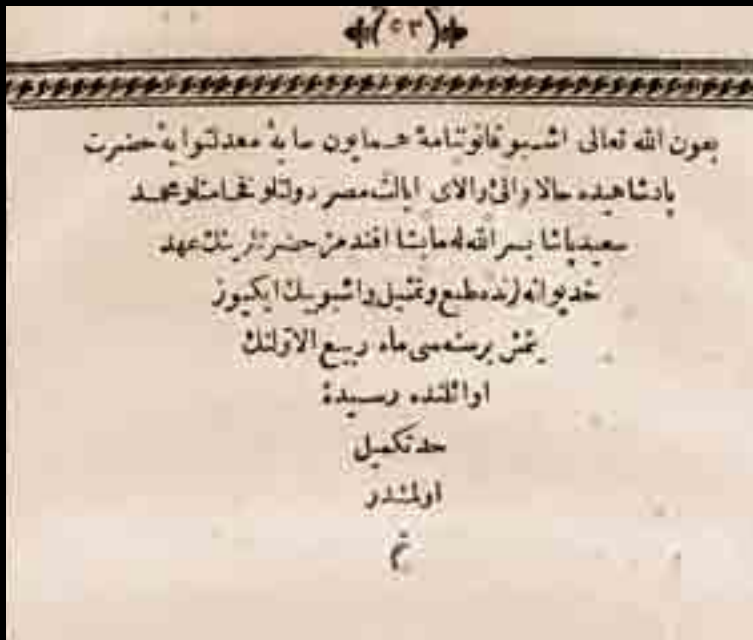 (٥٣)
بعون الله تعالى اشبو قانوننامهٔ همايون سايهٔ معدلتوايهٔ حضرت
پادشاهیده حالا والئ والای ایالت مصر دولتلو فخامتلو محمد
سعید پاشا یسر الله له مایشا افندمز حضرتلرینك عهد
خدیوانه‌لرنده طبع وتمثیل و اشبو بیك ایکیوز
یتمش برسنه‌سی ماه ربیع الاولنك
اوائلنده رسیدهٔ
حد تکمیل
اولمشدر
تم